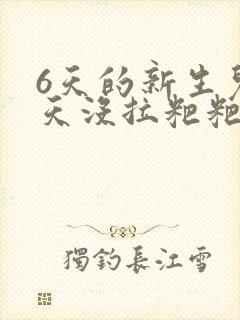 6天的新生
天没拉粑粑
獨釣長江雪